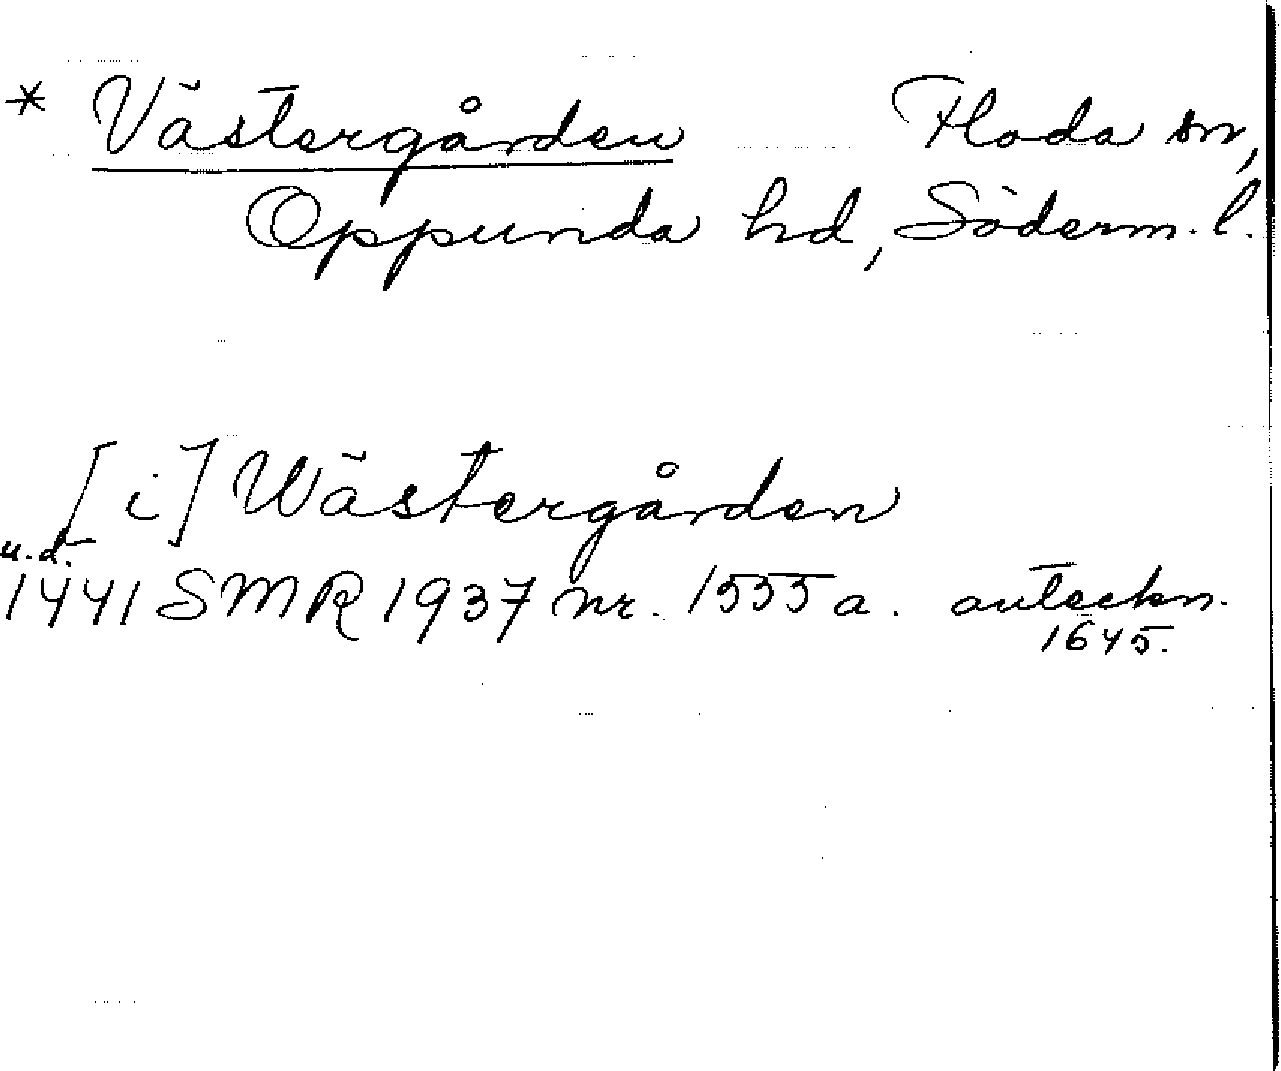 * Västergården Floda sn,
Oppunda hd, Söderm. l.
[i] Wästergården
u.d.
1441 SMR 1937 nr. 1555 a. anteckn.
1645.